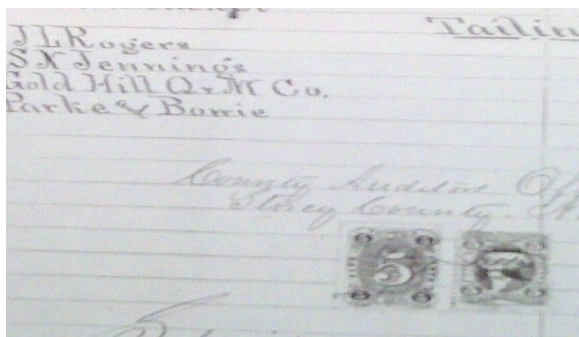 Tailin
J L Rogers
S N Jennings
Gold Hill Q. M Co.
Parke & Bowie
County Auditor Of
Storey County. N
5